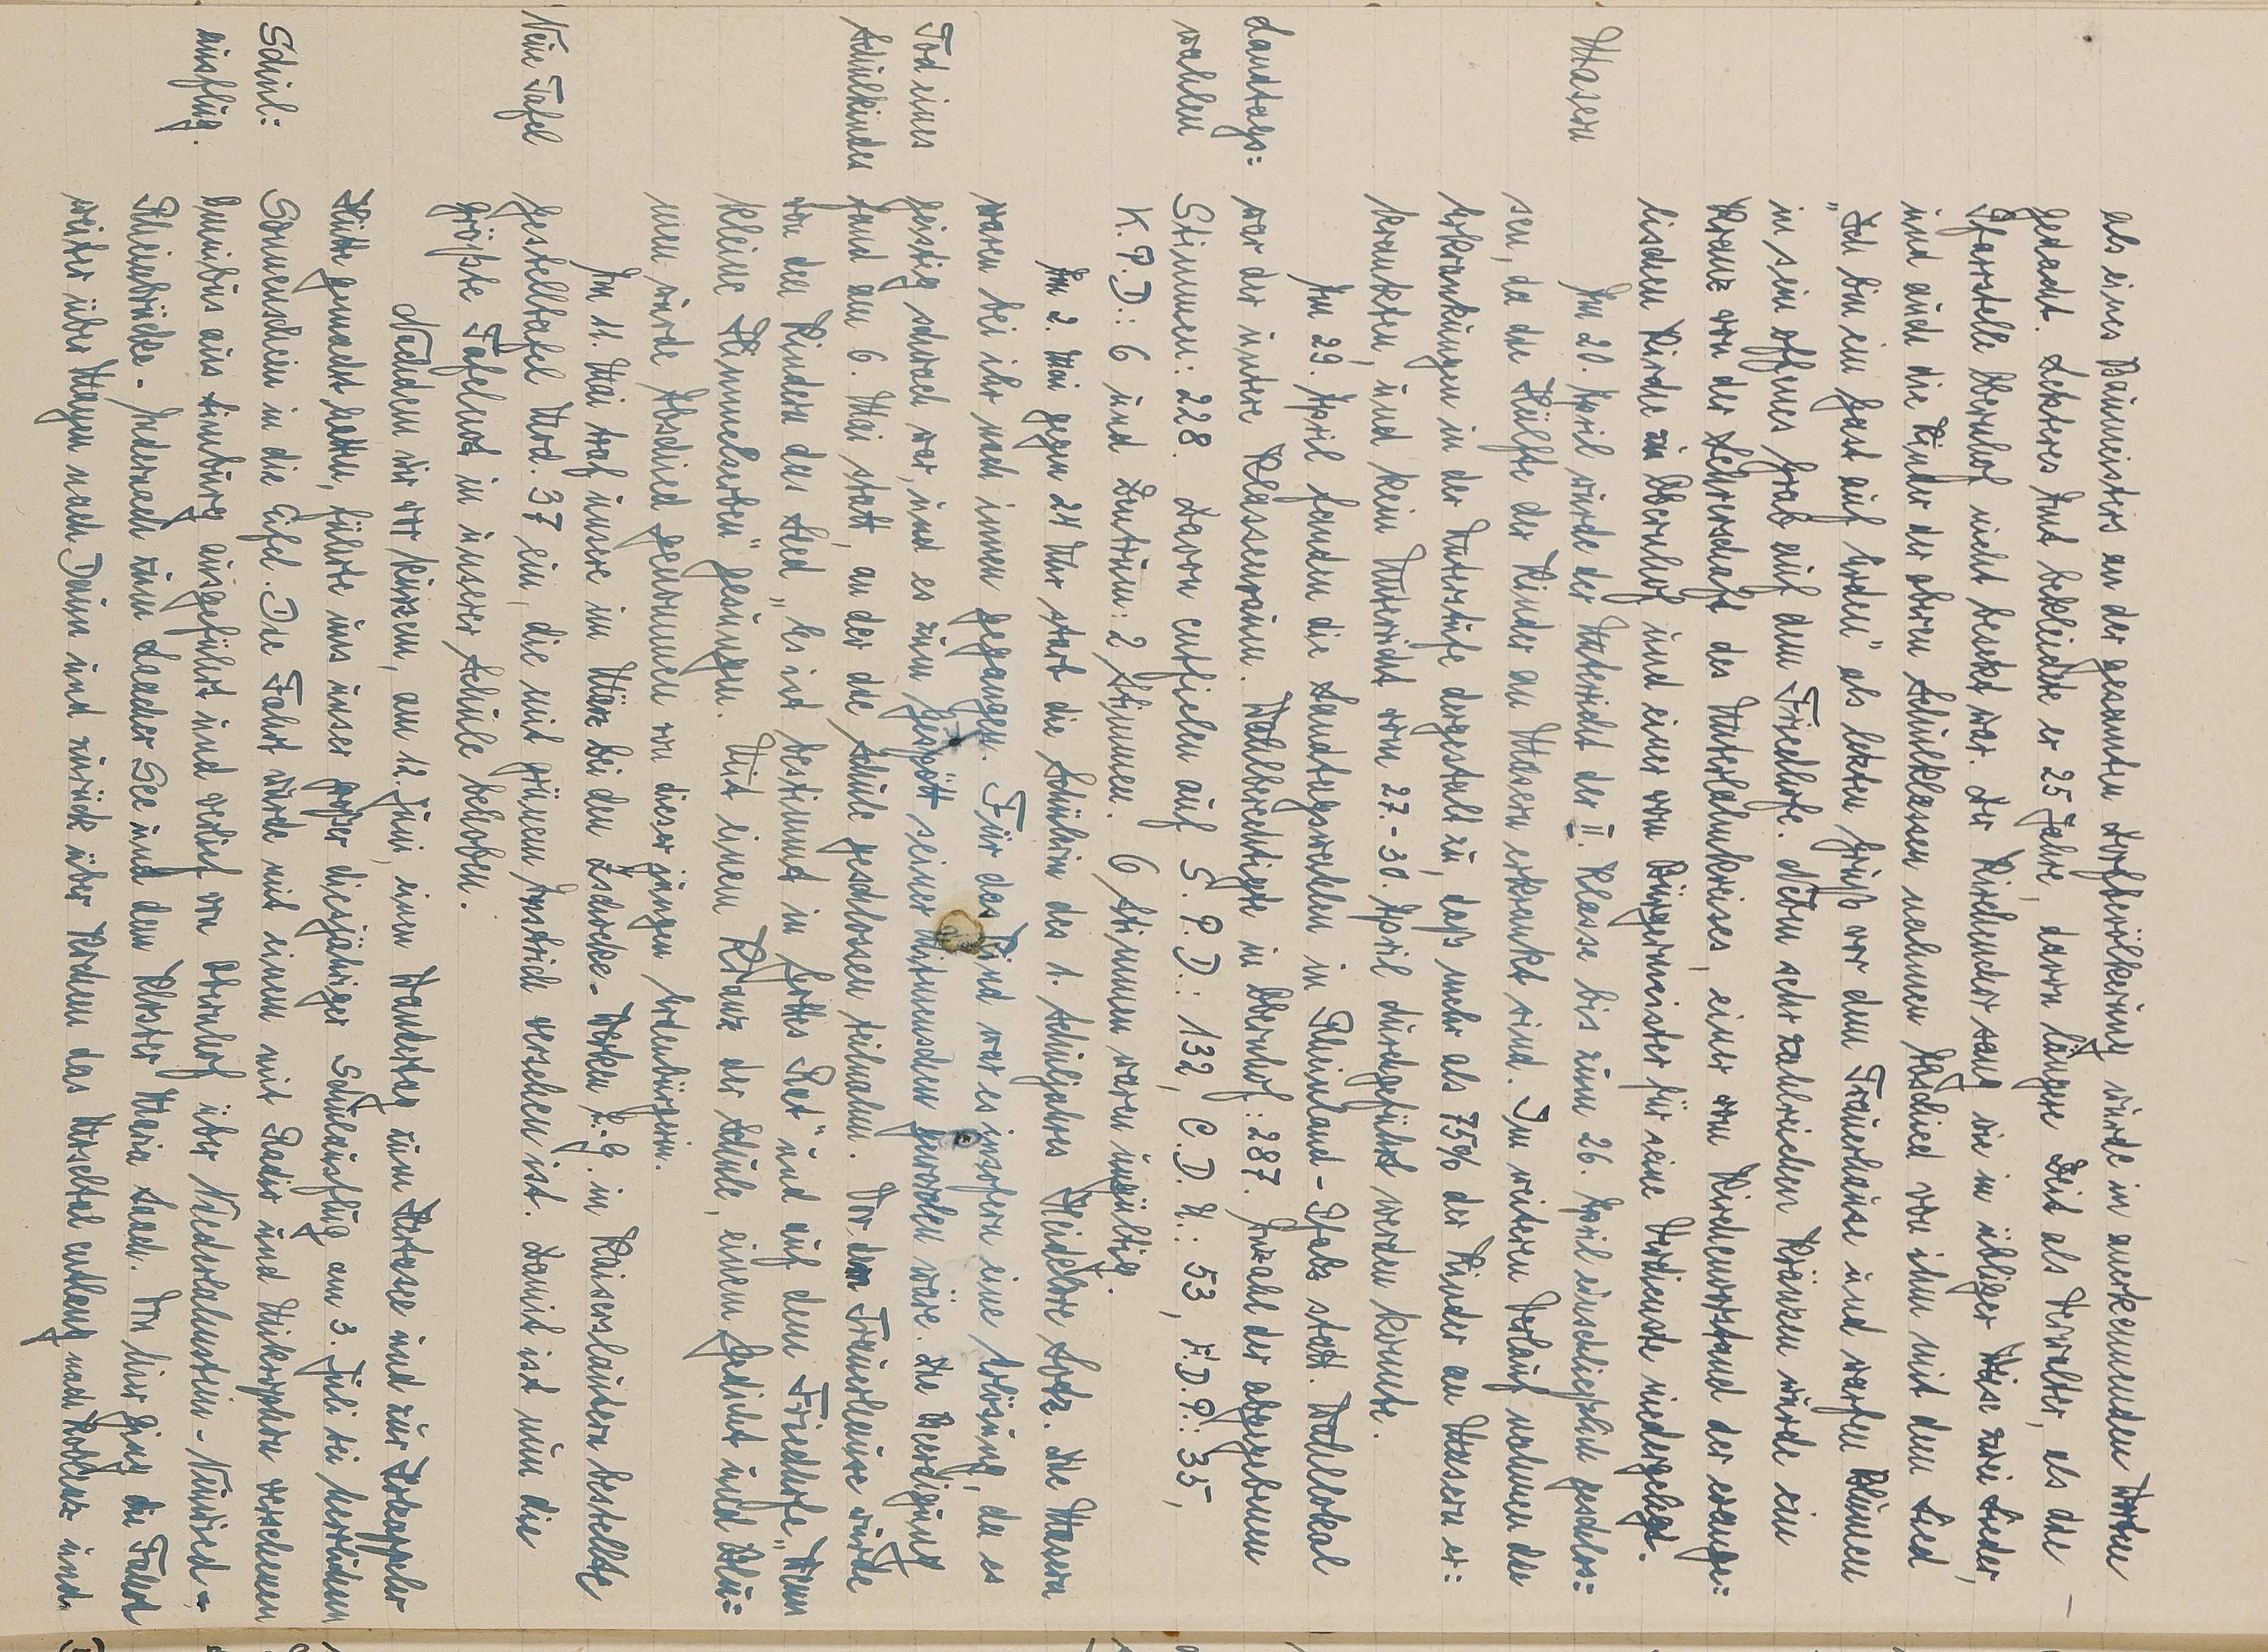 als eines Baumeisters an der gesamten Dorfbevölkerung wurde in anerkennenden Worten
gedacht. Letzteres Amt bekleidete er 25 Jahre, davon längere Zeit als Verwalter, als die —
Pfarrstelle Obernhof nicht besetzt war. Der Kirchenchor sang wie in üblicher Weise zwei Lieder,
und auch die Kinder der oberen Schulklassen nahmen Abschied von ihm mit dem Lied
„Ich bin ein Gast auf Erden" als letzten Gruß vor dem Trauerhause und warfen Blumen
in sein offenes Grab auf dem Friedhofe. Neben sehr zahlreichen Kränzen wurde ein
Kranz von der Lehrerschaft des Unterlahnkreises, einer vom Kirchenvorstand der evange=
lischen Kirche zu Obernhof und einer vom Bürgermeister für seine Verdienste niedergelegt.
Masern
Am 20. April wurde der Unterricht der II. Klasse bis zum 26. April einschließlich geschlos=
sen, da die Hälfte der Kinder an Masern erkrankt sind. Im weiteren Verlauf nahmen die
Erkrankungen in der Unterstufe dergestalt zu, daß mehr als 75% der Kinder an Masern er=
krankten, und kein Unterricht vom 27.-30. April durchgeführt werden konnte.
Landtags=
wahlen
Am 29. April fanden die Landtagswahlen in Rheinland-Pfalz statt. Wahllokal
war der untere Klassenraum. Wahlberechtigte in Obernhof: 287. Anzahl der abgegebenen
Stimmen: 228. Davon entfielen auf S.P.D.: 132, C.D.U.: 53, F.D.P.: 35,
K.P.D.: 6 und Zentrum: 2 Stimmen. 6 Stimmen waren ungültig.
Tod eines
Schulkindes
Am 2. Mai gegen 24 Uhr starb die Schülerin des 1. Schuljahres Heidelore Lotz. Die Masern
waren bei ihr nach innen gegangen. Für das Kind war es insofern eine Erlösung, da es
geistig schwach war, und es zum Gespött seiner Mitmenschen geworden wäre. Die Beerdigung
fand am 6. Mai statt, an der die Schule geschlossen teilnahm. Vor dem Trauerhause wurde
von den Kindern das Lied „Es ist bestimmt in Gottes Rat" und auf dem Friedhofe „Wenn
kleine Himmelserben" gesungen. Mit einem Kranz der Schule, einem Gedicht und Blu=
men wurde Abschied genommen von dieser jungen Erdenbürgerin.
Neue Tafel
Am 11. Mai traf unsere im März bei den Zschocke-Werken A.G. in Kaiserslautern bestellte
Gestelltafel Mod. 37 ein, die mit grünem Anstrich versehen ist. Damit ist nun die
größte Tafelnot in unserer Schule behoben.
Schul=
ausflug.
Nachdem wir vor kurzem, am 12. Juni, einen Wandertag zum Hertasee und zur
Hütte gemacht hatten, führte uns unser großer diesjähriger Schulausflug am 3. Juli bei herrlichem
Sonnenschein in die Eifel. Die Fahrt wurde mit einem mit Radio und Mikrophon versehenen
Omnibus aus Limburg ausgeführt und verlief von Obernhof über Niederlahnstein - Neuwied -
Rheinbrücke - Andernach zum Laacher See und dem Kloster Maria Laach. Von hier ging die Fahrt
weiter über Mayen nach Daun und zurück über Kochem das Moseltal entlang nach Koblenz und